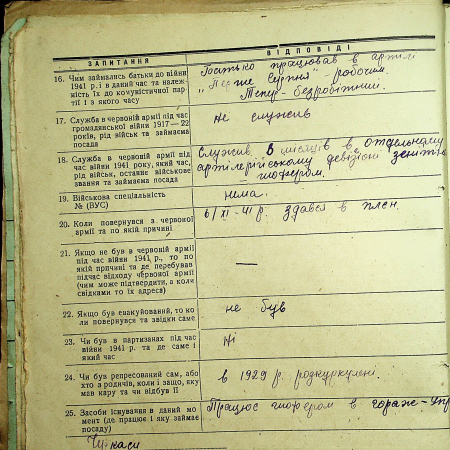 ЗАПИТАННЯ ВІДПОВІДІ
16. Чим займались батьки до війни
1941 р. і в даний час та належ-
ність їх до комуністичної пар-
тії і з якого часу
Батько працював в артілі
„Перше Серпня" робочим.
Тепер - безробітний.
17. Служба в червоній армії під час
громадянської війни 1917—22
років, рід військ та займаєма
посада
не служив
18. Служба в червоній армії під
час війни 1941 року, який час,
рід військ, останнє військове
звання та займаєма посада
Служив 3 місяців в отдельному
артилерійському девізіоні зеніт
шофером.
19. Військова спеціяльність
№ (ВУС)
нема.
20. Коли повернувся з червоної
армії та по якій причині
6/XI-41 р. здався в плен.
21. Якщо не був в червоній армії
під час війни 1941 р., то по
якій причині та де перебував
під час відходу червоної армії
(чим може підтвердити, а коли
свідками то їх адреса)
—
22. Якщо був евакуйований, то ко
ли повернувся та звідки саме
не був
23. Чи був в партизанах під час
війни 1941 р. та де саме і
який час
Ні
24. Чи був репресований сам, або
хто з родичів, коли і защо, яку
мав кару та чи відбув її
в 1929 р. розкуркулені.
25. Засоби існування в даний мо
мент (де працює і яку займає
посаду)
Працює шофером в гараж-Упр
Черкаси